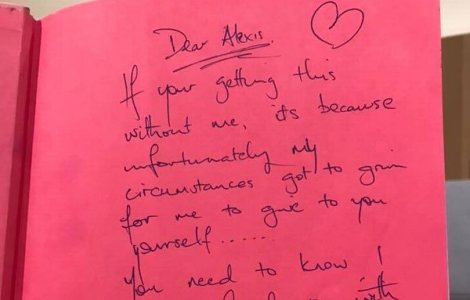 Dear Alexis.
If your getting this
without me, its because
unfortunately my
circumstances got to grim
for me to give to you
yourself......
You need to know I
with